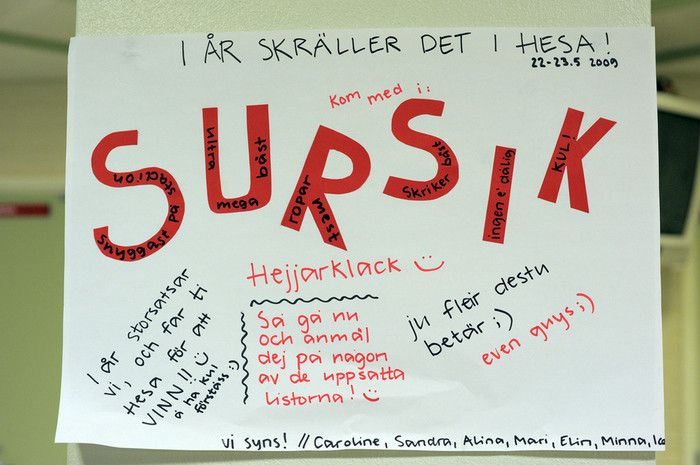 I ÅR SKRÄLLER DET I HESA!
22-23.5 2009
Kom med i:
SURSIK
snyggast på stadion
ultra mega bäst
ropar mest
Skriker bäst
ingen e' dålig
KUL!
Hejjarklack :)
I år storsatsar
vi, och far ti
Hesa för att
VINN!! :)
å ha kul
förstäss :)
Så gå nu
och anmäl
dej på någon
av de uppsatta
listorna! :)
ju fleir destu
betär ;)
even guys ;)
vi syns! // Caroline, Sandra, Alina, Mari, Elin, Minna,